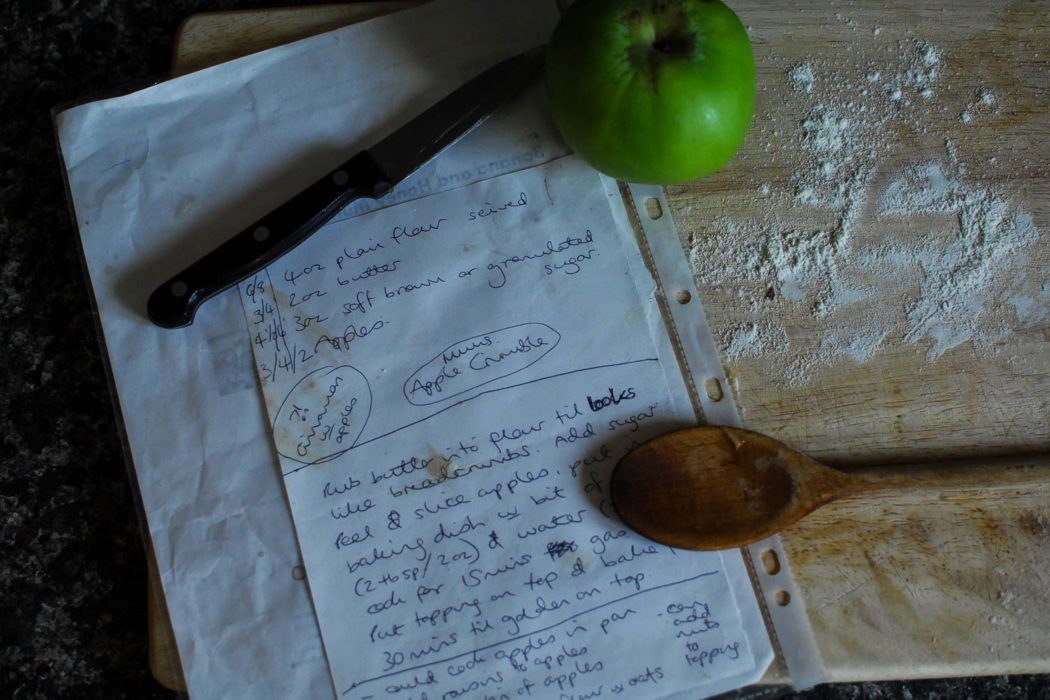 Banana and Hon
4oz plain flour seived
6/8 2oz butter
3/4 3oz soft brown or granulated
sugar.
3/4/2 Apples.
Mums
Apple Crumble
cinnamon
w/
apples
Rub butter into flour til looks
like breadcrumbs. Add sugar
Peel & slice apples, put in
baking dish w bit of
(2tbsp/2oz) & water
cook for 15mins gas
Put topping on top & bake
30 mins til golden on top
- could cook apples in pan
raisons to apples
of apples
flour w oats
can add
nuts
to
topping